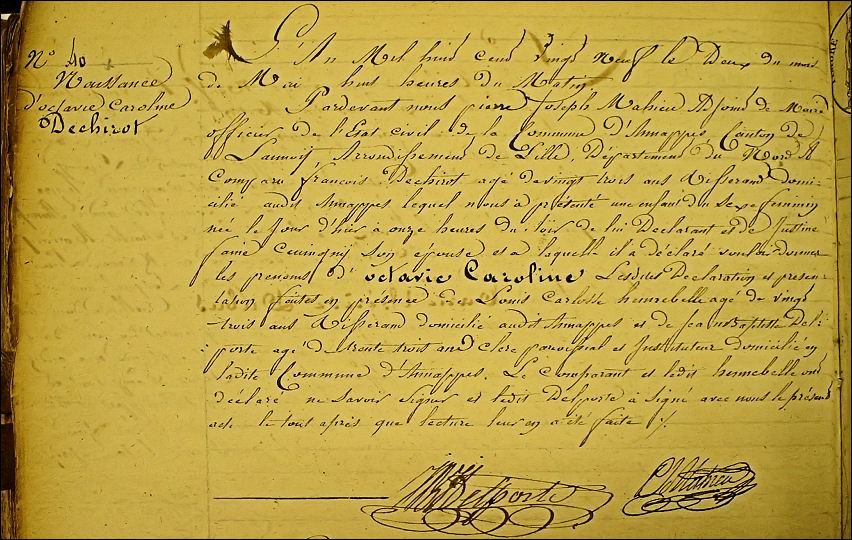 N° 40
Naissance
d'octavie Caroline
Dechirot
L'An Mil huit cent vingt Neuf le Deux du mois
de Mai huit heures du Matin
Pardevant nous pierre Joseph Mahieu Adjoint de Maire
officier de l'Etat civil de la Commune d'Annappes Canton de
Lannoy, Arrondissement de Lille, Département du Nord A
Comparu francois Dechirot agé de vingt trois ans Tisserand Domi-
cilié audit Annappes lequel nous a présenté une enfant du sexe feminin
née le Jour d'hier à onze heures du soir de lui Declarant et de Justine
son épouse et a laquelle il a déclaré vouloir donner
les prenoms d'octavie Caroline Lesdites Declaration et presen-
tation faites en présence de Louis hennebelle agé de vingt
trois ans Tisserand domicilié audit Annappes et de jean Baptiste Del-
porte agé de trente trois ans Clerc paroissial et Instituteur domicilié en
ladite Commune d'Annappes. Le Comparant et ledit hennebelle ont
declaré ne savoir signer et ledit Delporte à signé avec nous le présent
acte le tout après que lecture leur en a été faite ./.
Delporte
Mahieu